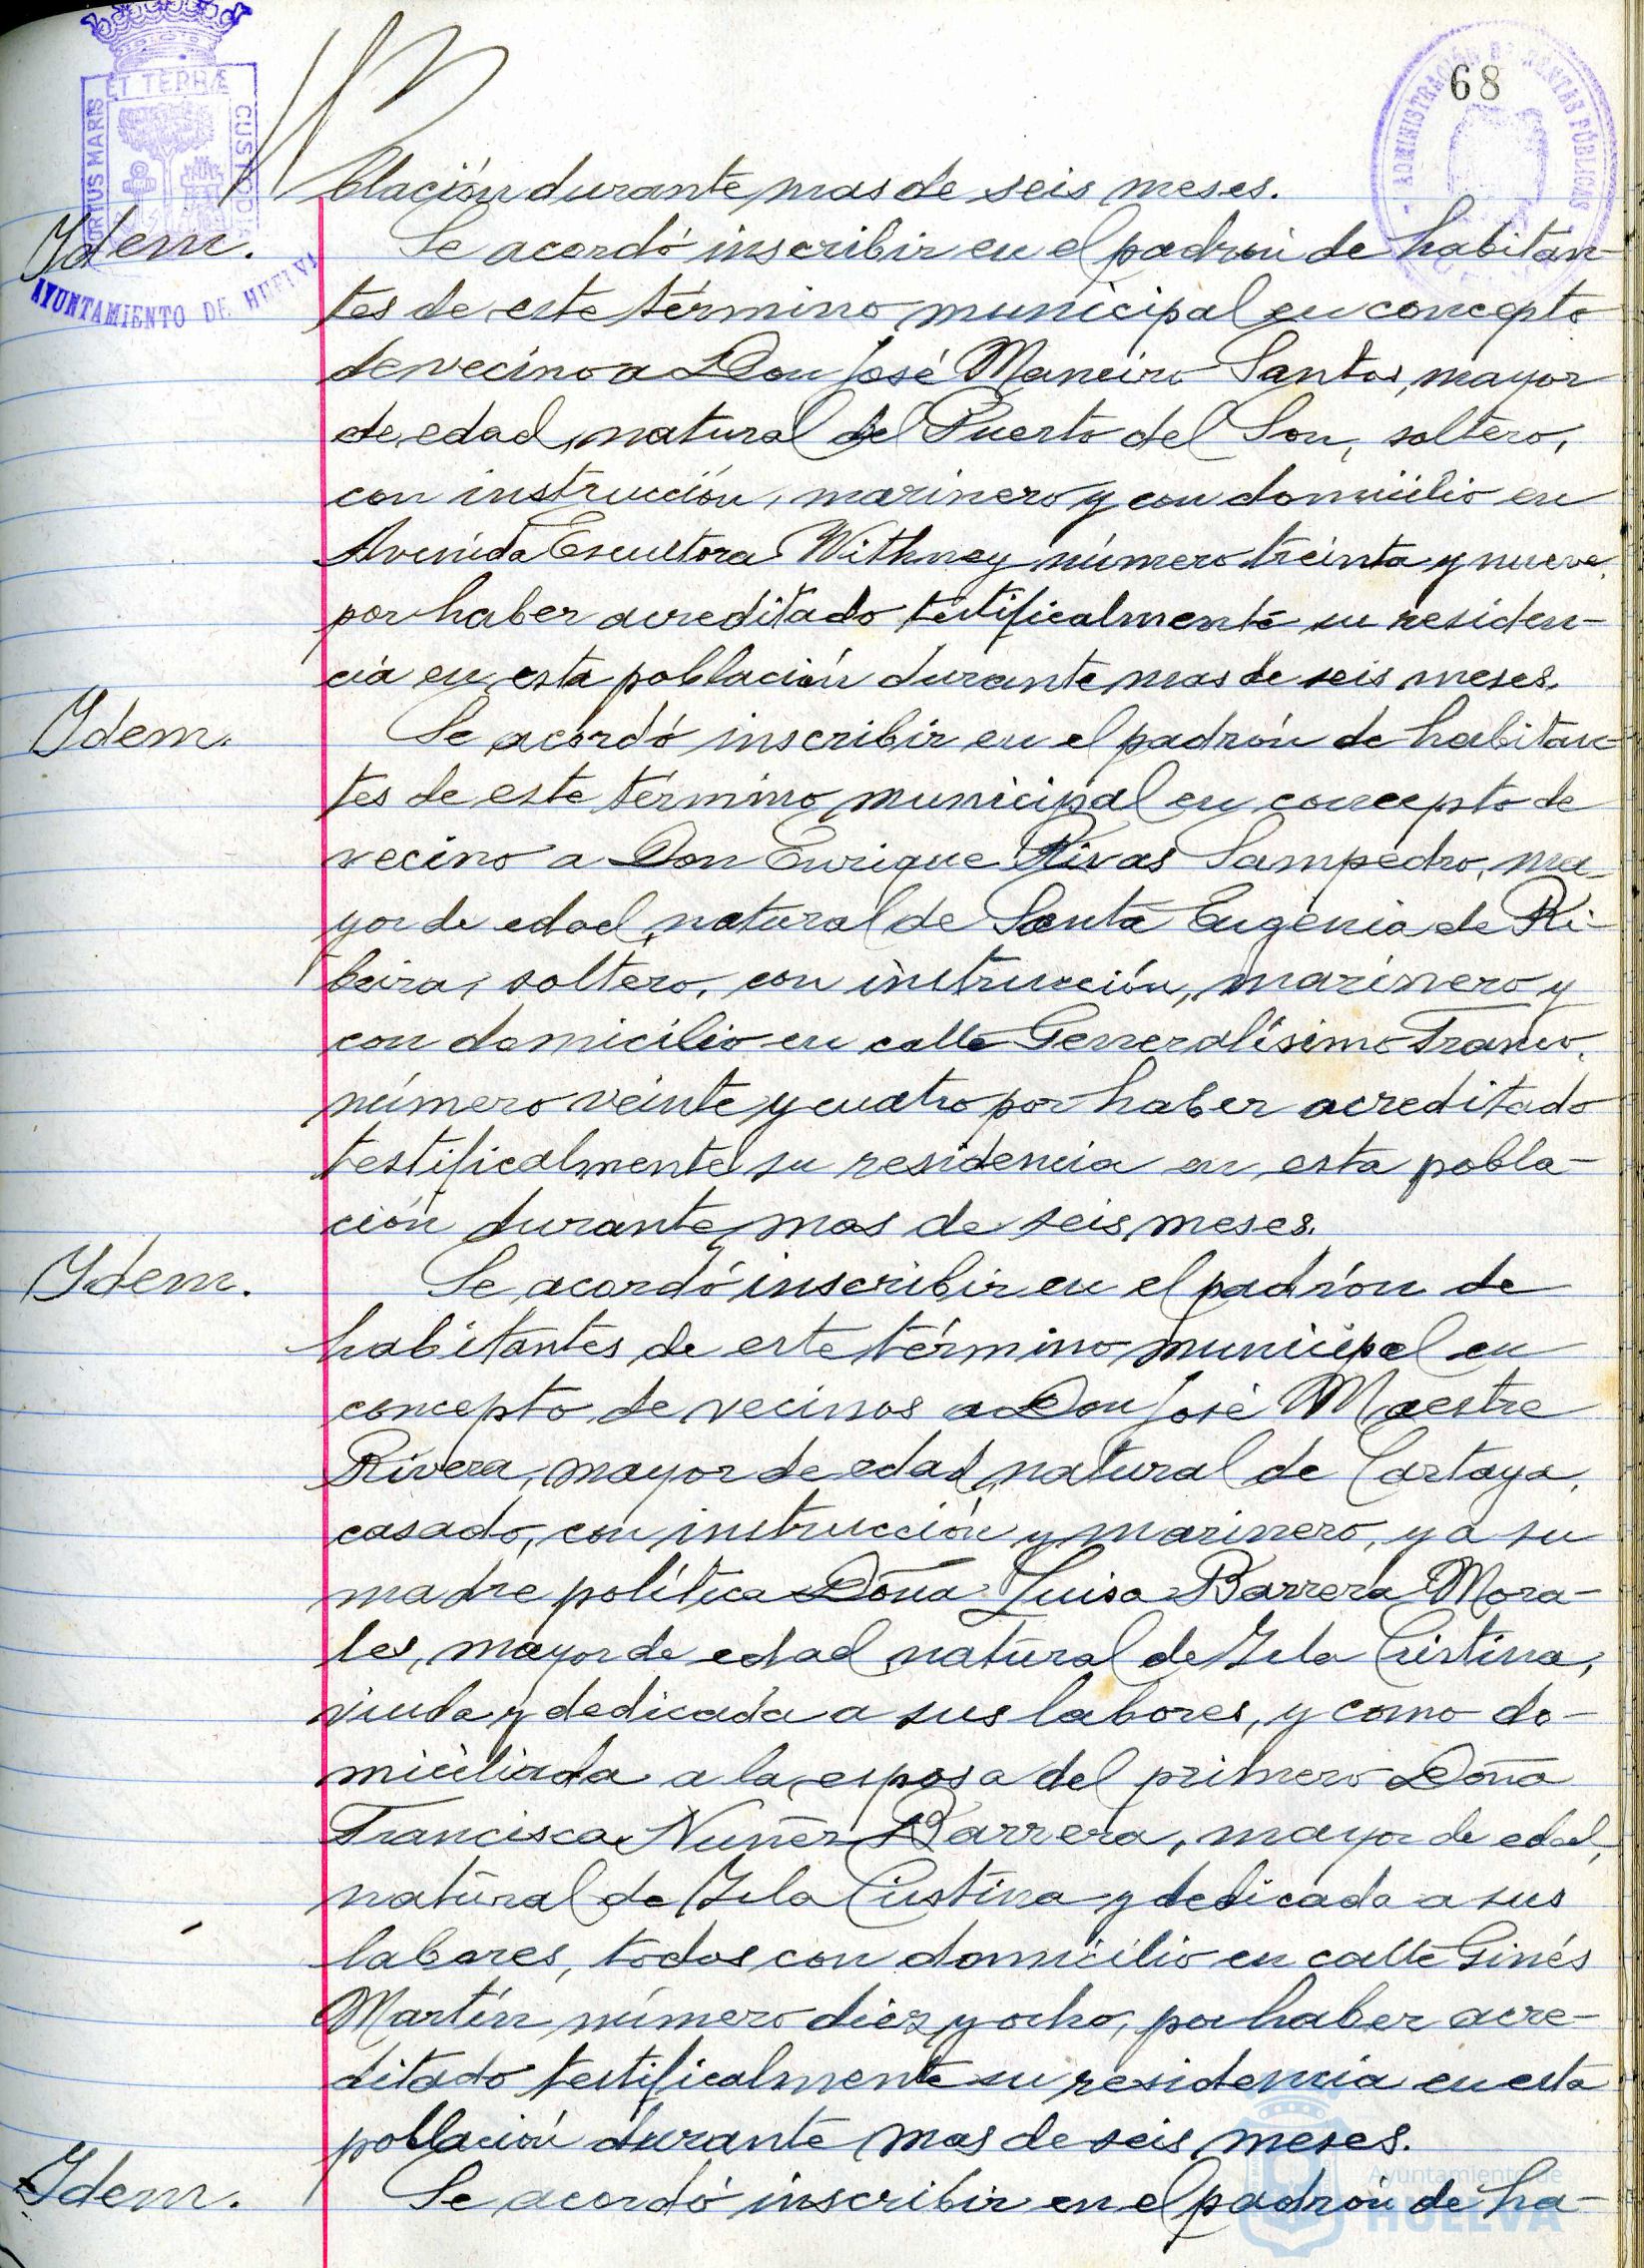 68
ET TERRÆ
PORTUS MARIS
CUSTODIA
AYUNTAMIENTO DE HUELVA
ADMINISTRACIÓN DE RENTAS PÚBLICAS
blación durante mas de seis meses.
Idem.
Se acordó inscribir en el padrón de habitan-
tes de este término municipal en concepto
de vecino a Don José Maneiro Santos, mayor
de edad, natural del Puerto del Son, soltero,
con instrucción, marinero y con domicilio en
Avenida Escultora Withney número treinta y nueve,
por haber acreditado testificalmente su residen-
cia en esta población durante mas de seis meses.
Idem.
Se acordó inscribir en el padrón de habitan-
tes de este término municipal en concepto de
vecino a Don Enrique Rivas Sampedro, ma-
yor de edad, natural de Santa Eugenia de Ri-
beira, soltero, con instrucción, marinero y
con domicilio en calle Generalísimo Franco,
número veinte y cuatro por haber acreditado
testificalmente su residencia en esta pobla-
ción durante mas de seis meses.
Idem.
Se acordó inscribir en el padrón de
habitantes de este término municipal en
concepto de vecinos a Don José Maestre
Rivera, mayor de edad, natural de Cartaya,
casado, con instrucción y marinero, y a su
madre política Doña Luisa Barrera Mora-
les, mayor de edad, natural de Isla Cristina,
viuda y dedicada a sus labores, y como do-
miciliada a la esposa del primero Doña
Francisca Nuñez Barrera, mayor de edad,
natural de Isla Cristina y dedicada a sus
labores, todos con domicilio en calle Ginés
Martín número diez y ocho, por haber acre-
ditado testificalmente su residencia en esta
población durante mas de seis meses.
Idem.
Se acordó inscribir en el padrón de ha-
Ayuntamiento de
HUELVA